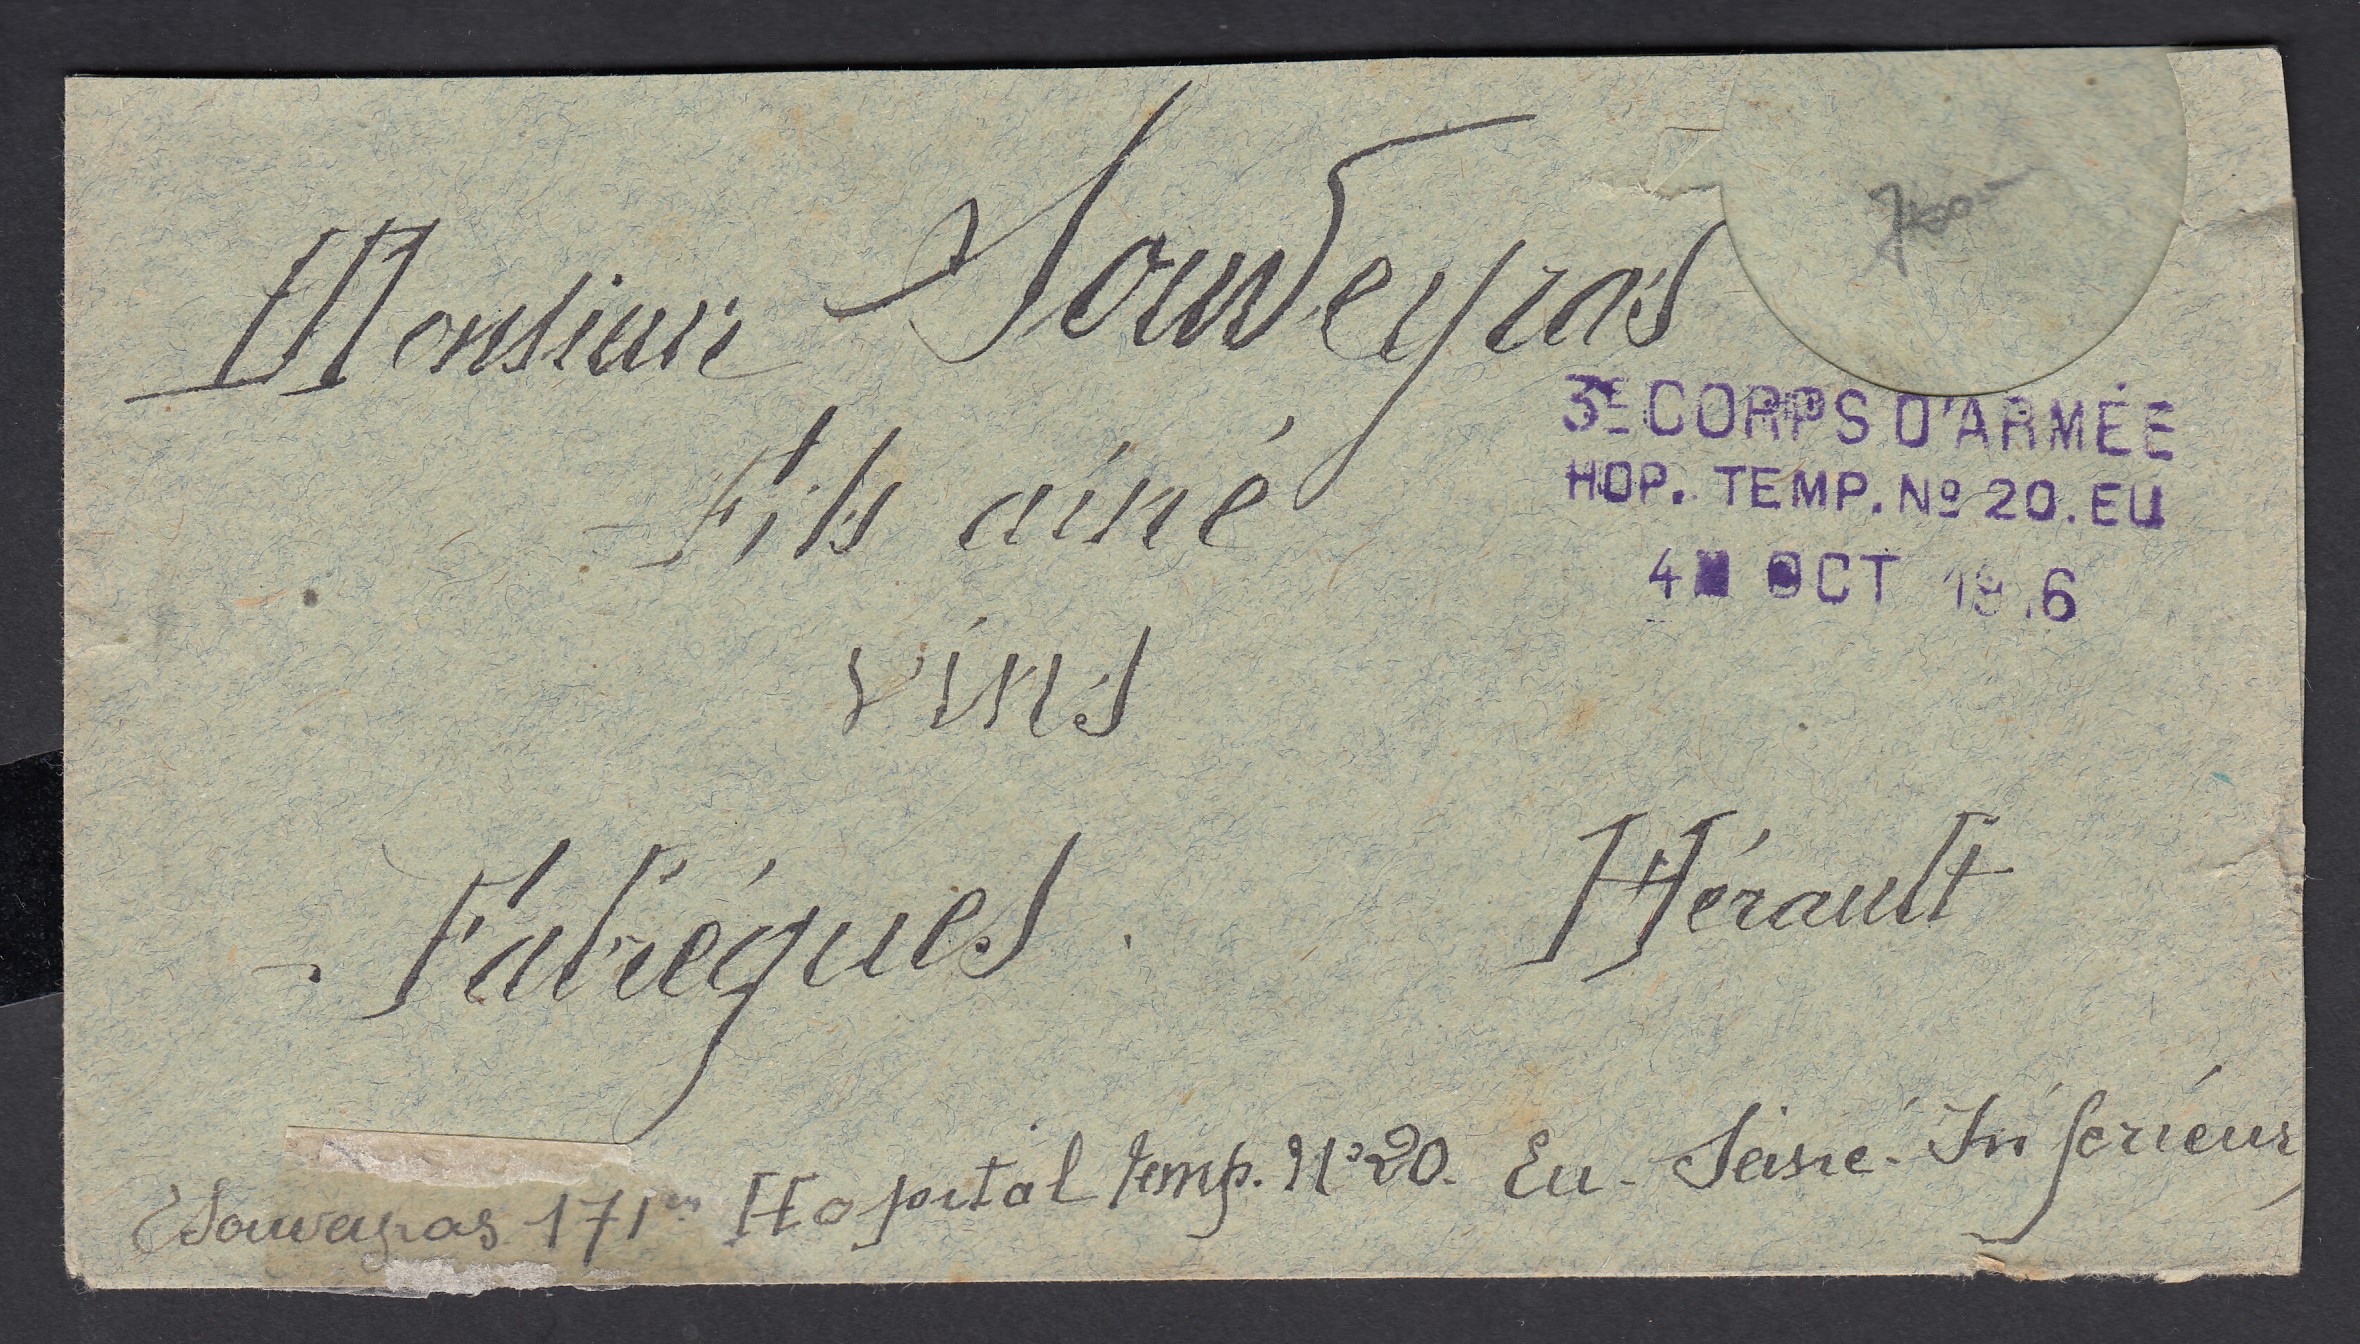 Monsieur Souveyras
Fils ainé
vins
Fabrégues. Hérault
3E CORPS D'ARMÉE
HOP. TEMP. No 20. EU
4 OCT 19 6
Souveyras 171em Hopital temp. No 20. Eu. Seine. Inférieur